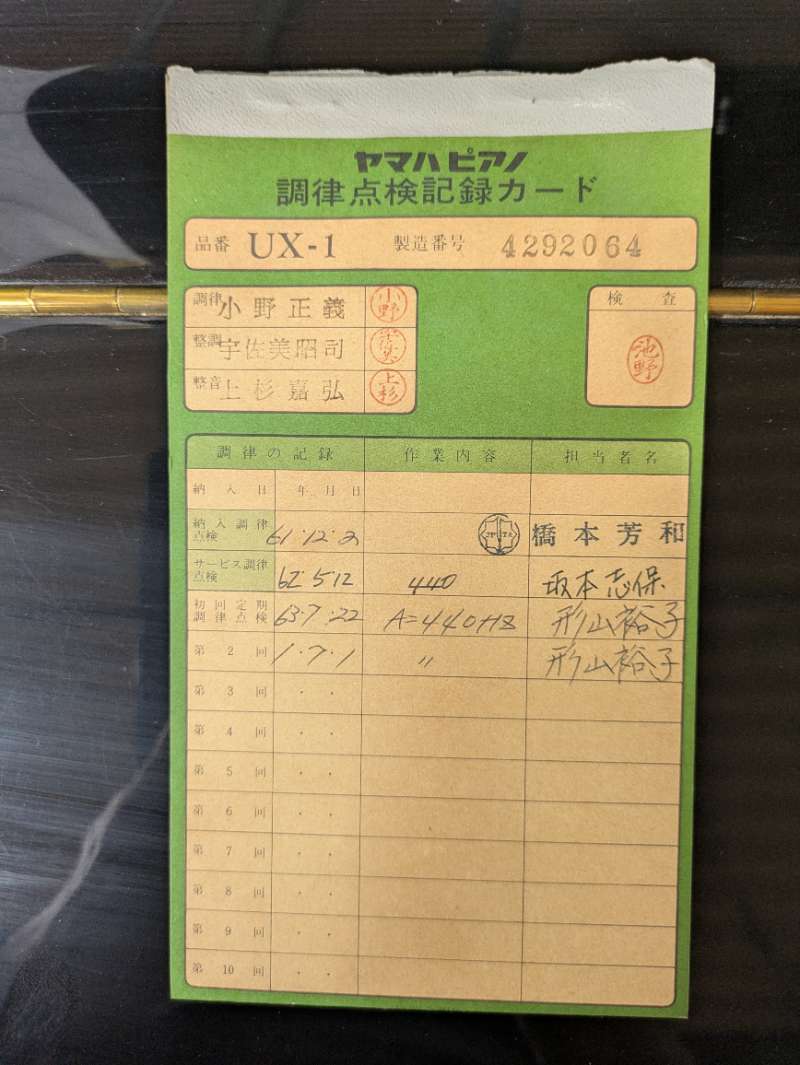 ヤマハピアノ
調律点検記録カード
品番 UX-1 製造番号 4292064
調律 小野正義 小野
整調 宇佐美昭司
整音 上杉嘉弘 上杉
検査
池野
調律の記録 作業内容 担当者名
納入日 年月日
納入調律点検 61・12・2 橋本芳和
サービス調律点検 62・5・12 440 坂本志保
初回定期調律点検 63・7・22 A=440+8 形山裕子
第2回 1・7・1 〃 形山裕子
第3回 ・・
第4回 ・・
第5回 ・・
第6回 ・・
第7回 ・・
第8回 ・・
第9回 ・・
第10回 ・・